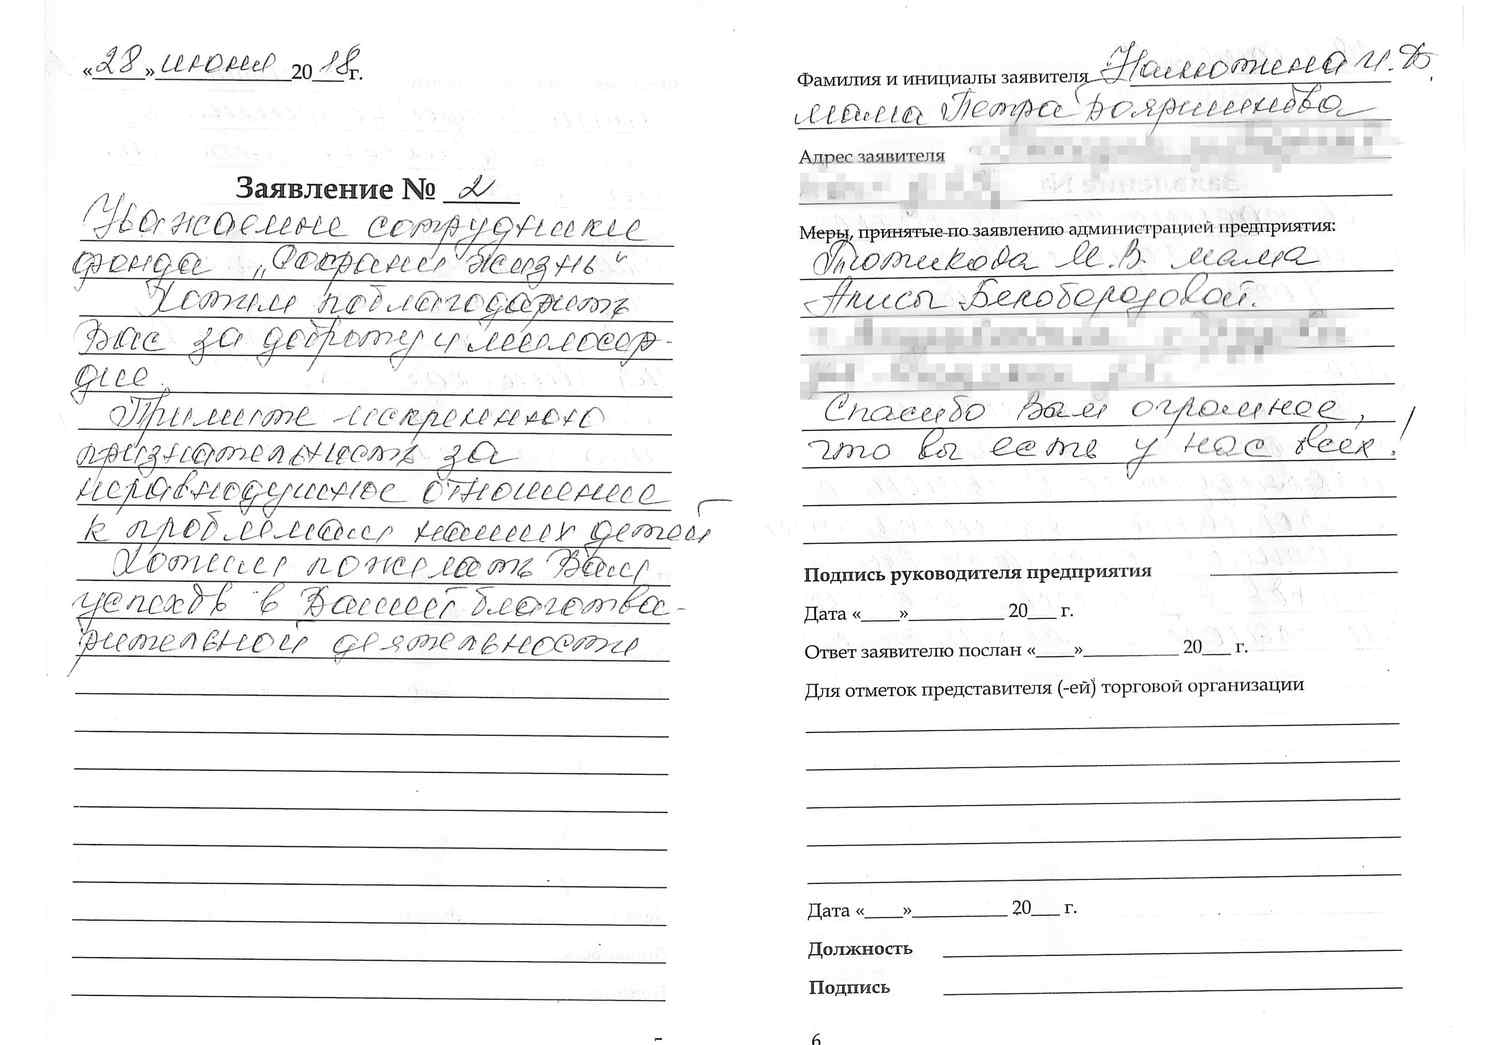 «28» июня 2018 г.
Заявление № 2
Уважаемые сотрудники
фонда „Сохрани жизнь“
Хотим поблагодарить
Вас за доброту и милосер-
дие.
Примите искреннюю
признательность за
неравнодушное отношение
к проблемам наших детей
Хотим пожелать Вам
успехов в Вашей благотво-
рительной деятельности
Фамилия и инициалы заявителя И.В.
мама Петра
Адрес заявителя
Меры, принятые по заявлению администрацией предприятия:
И.В. мама
Анисы Белобородовой.
Спасибо Вам огромное,
что вы есть у нас всех!
Подпись руководителя предприятия
Дата «____»__________ 20___ г.
Ответ заявителю послан «____»__________ 20___ г.
Для отметок представителя (-ей) торговой организации
Дата «____»__________ 20___ г.
Должность
Подпись
6